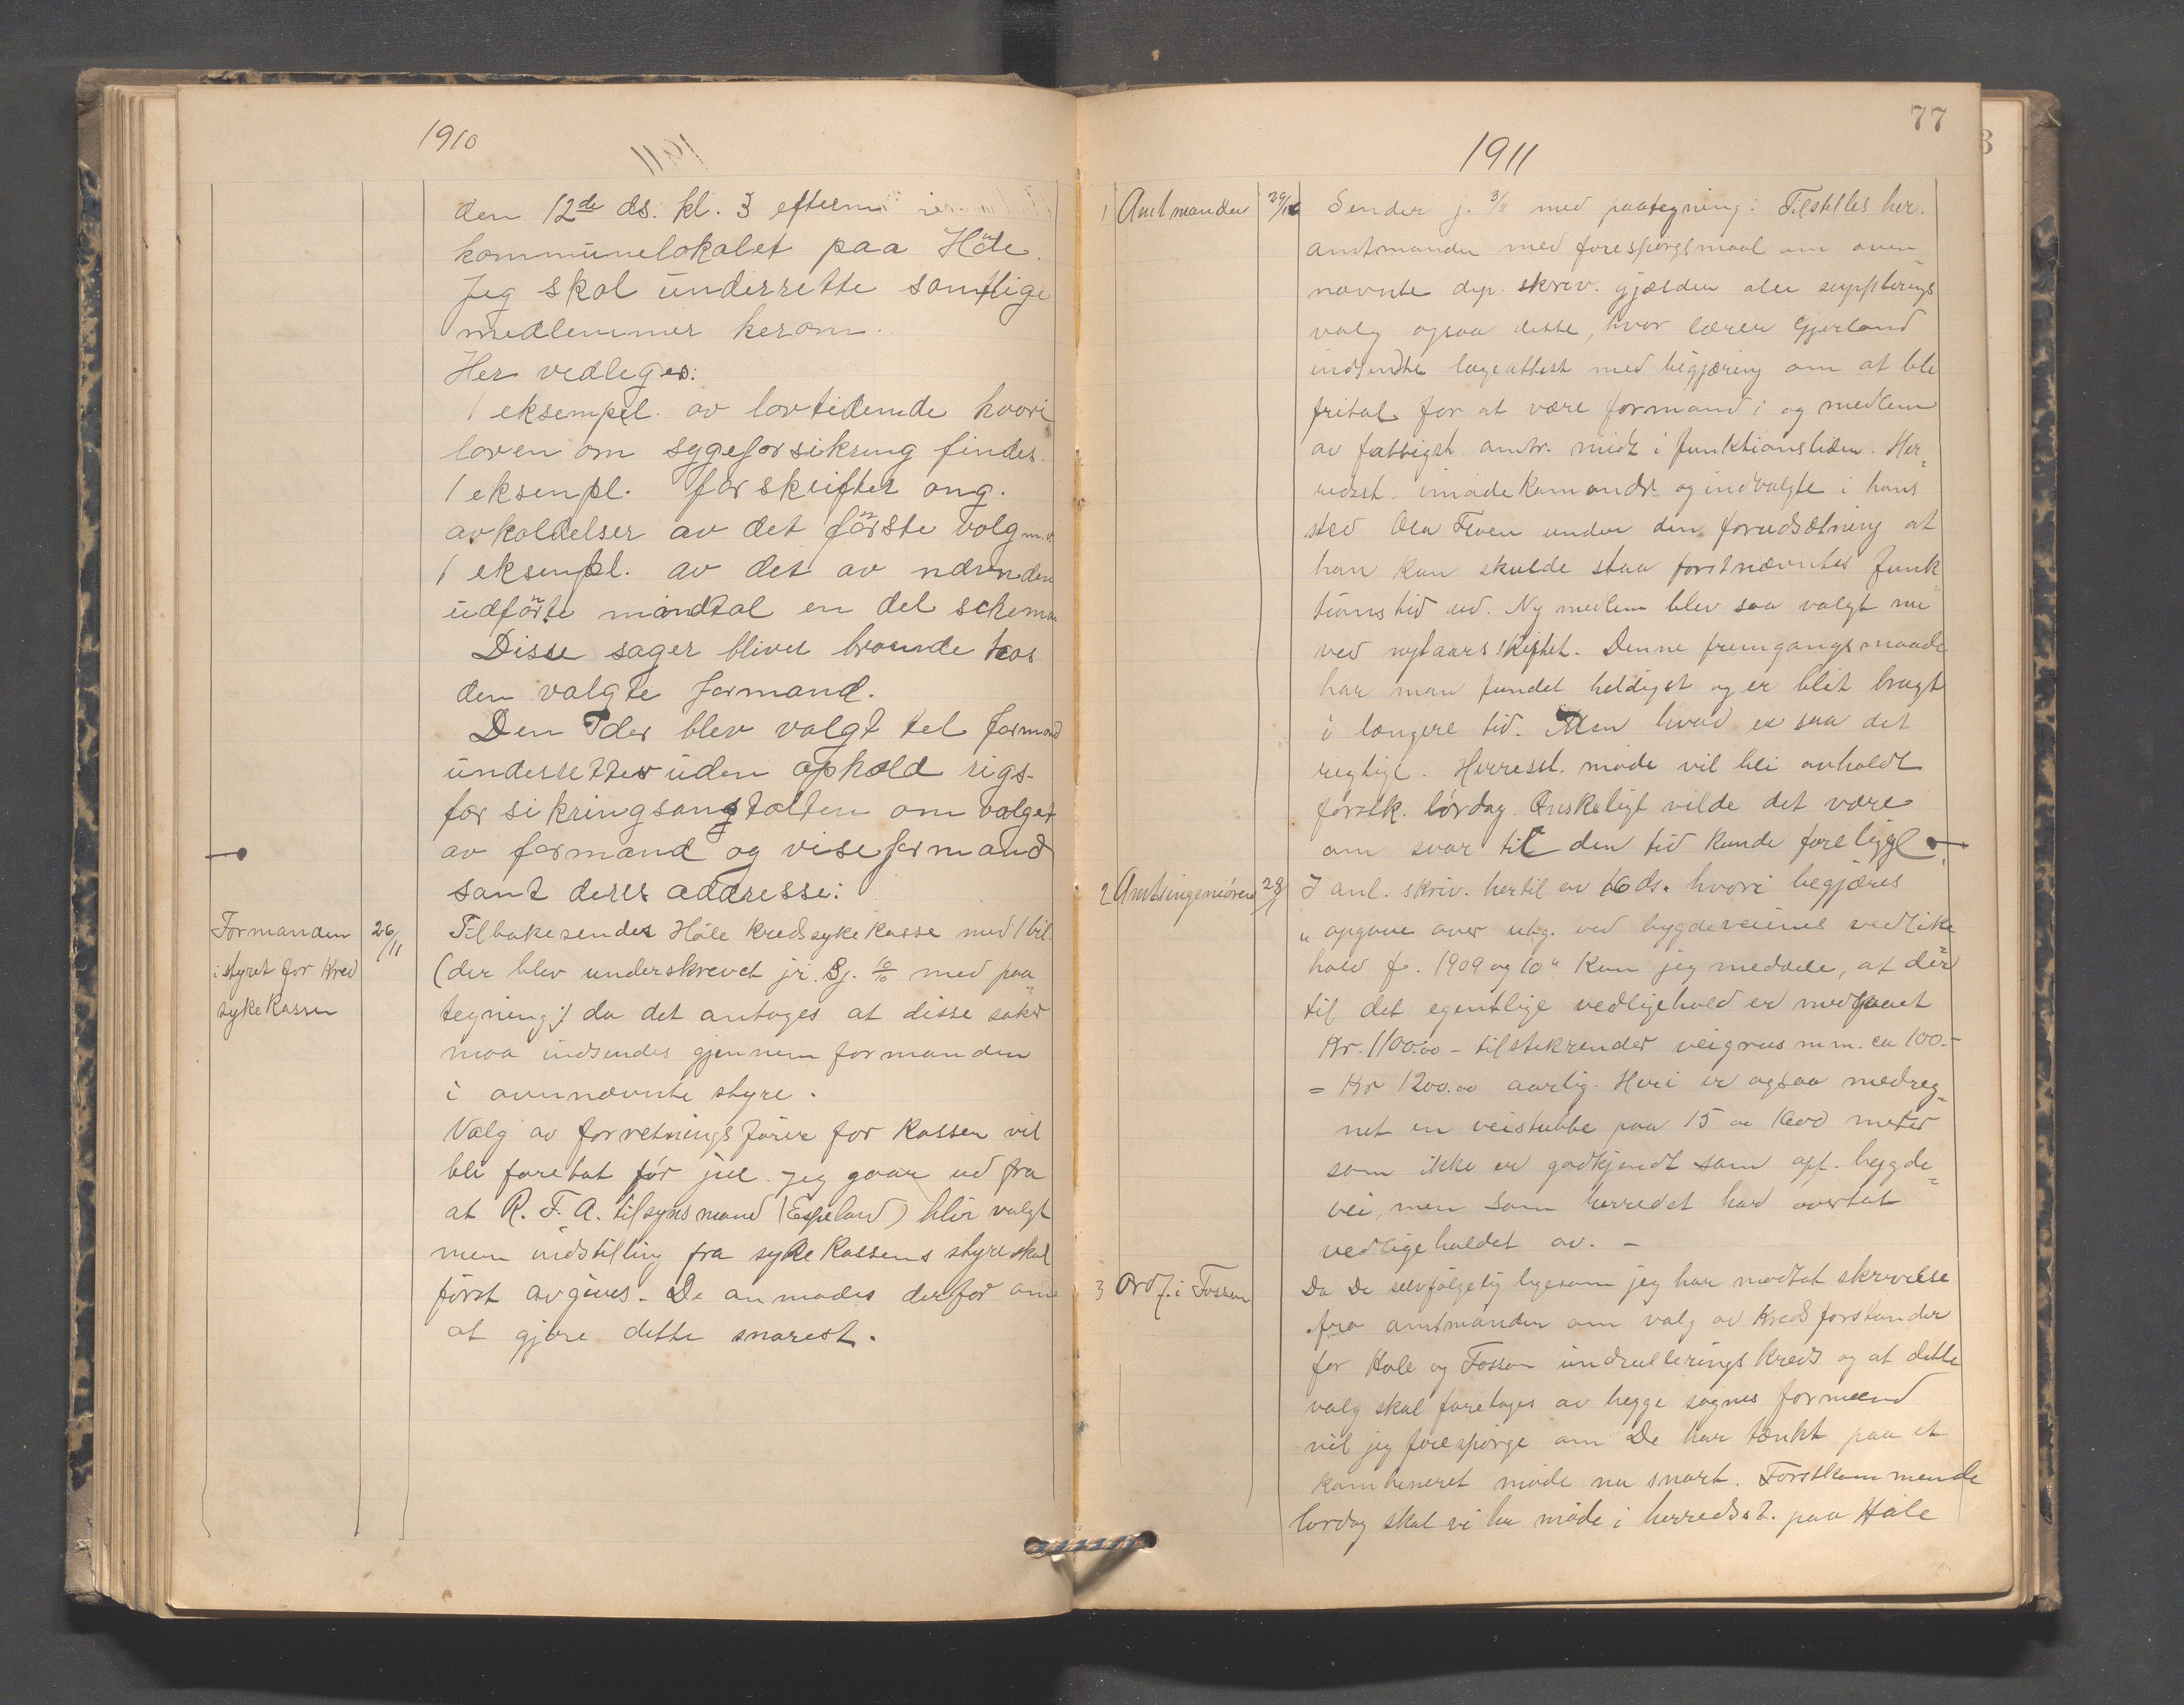 1910
den 12de ds. kl. 3 efterm i
kommunelokalet paa Höle.
Jeg skal underrette samtlige
medlemmer herom.
Her vedleges:
1 eksempel. av lovtidende hvori
loven om sygeforsikring findes.
1 eksenpl. forskrifter ang.
avholdelser av det förste valg m.v.
1 eksenpl. av det av
udförte mandtal en del schema
Disse sager bliver beroende hos
den valgte formand.
Den der blev valgt til formand
underretter uden ophold rigs-
forsikringsanstalten om valget
av formand og viseformand
samt deres addresse:
Formanden
i styret for Kred
sykekassen
26/11
Tilbakesender Höle kredsykekasse med 1 bil.
(der blev underskrevet jr. Sj. 10/10 med paa
tegning:) da det antages at disse saker
maa indsendes gjennem formanden
i ovennævnte styre.
Valg av forretningsförer for Kassen vil
bli foretat för jul. Jeg gaar ud fra
at R. F. A. tilsynsmand (Espeland) blir valgt
men indstilling fra sykekassens styre skal
först avgives. De anmodes derfor om
at gjöre dette snarest.
77
1911
1 Amtmanden
Sender j. 3/11 med paategning: Tilstilles her.
amtmanden med forespörgsmaal om oven
nævnte dep. skriv. gjælder alle supplerings
valg ogsaa disse, hvor lærer Gjerland
indsendte lægeattest med begjæring om at bli
fritat for at være formand i og medlem
av fattigst. midt i funktionstiden. Her
redsst. imödekom andr. og indvalgte i hans
sted Ola under den forudsætning at
han kun skulde staa forstnævntes funk
tionstid ud. Ny medlem blev saa valgt nu
ved nytaarsskiftet. Denne fremgangsmaade
har man fundet heldigst og er blit brugt
i længere tid. Men hvad er saa det
regtige. Herredst. möde vil bli avholdt
förstk. lördag. Önskeligt vilde det være
om svar til den tid kunde foreligge
2 Amtsingeniören
28/1
I anl. skriv. hertil av 16 ds. hvori begjæres
"opgave over utg. ved bygdeveienes vedlike
hold f. 1909 og 10" kan jeg meddele, at der
til det egentlige vedligehold er medgaaet
Kr. 1100.00 - tilstikrender veigrus m.m. ca 100.-
= Kr 1200.00 aarlig. Heri er ogsaa medreg
net en veistubbe paa 15 a 1600 meter
som ikke er godkjendt som off. bygde
vei, men som herredet har overtat
vedligeholdet av. -
3 Ordf. i Fossan
Da De selvfölgelig ligesom jeg har modtat skrivelse
fra amtmanden om valg av Kredsforstander
for Höle og Fossan indrulleringskreds og at dette
valg skal foretages av begge sognes formænd
vil jeg forespörge om De har tænkt paa et
kombineret möde nu snart. Forstkommende
lordag skal vi ha möde i herredst. paa Höle